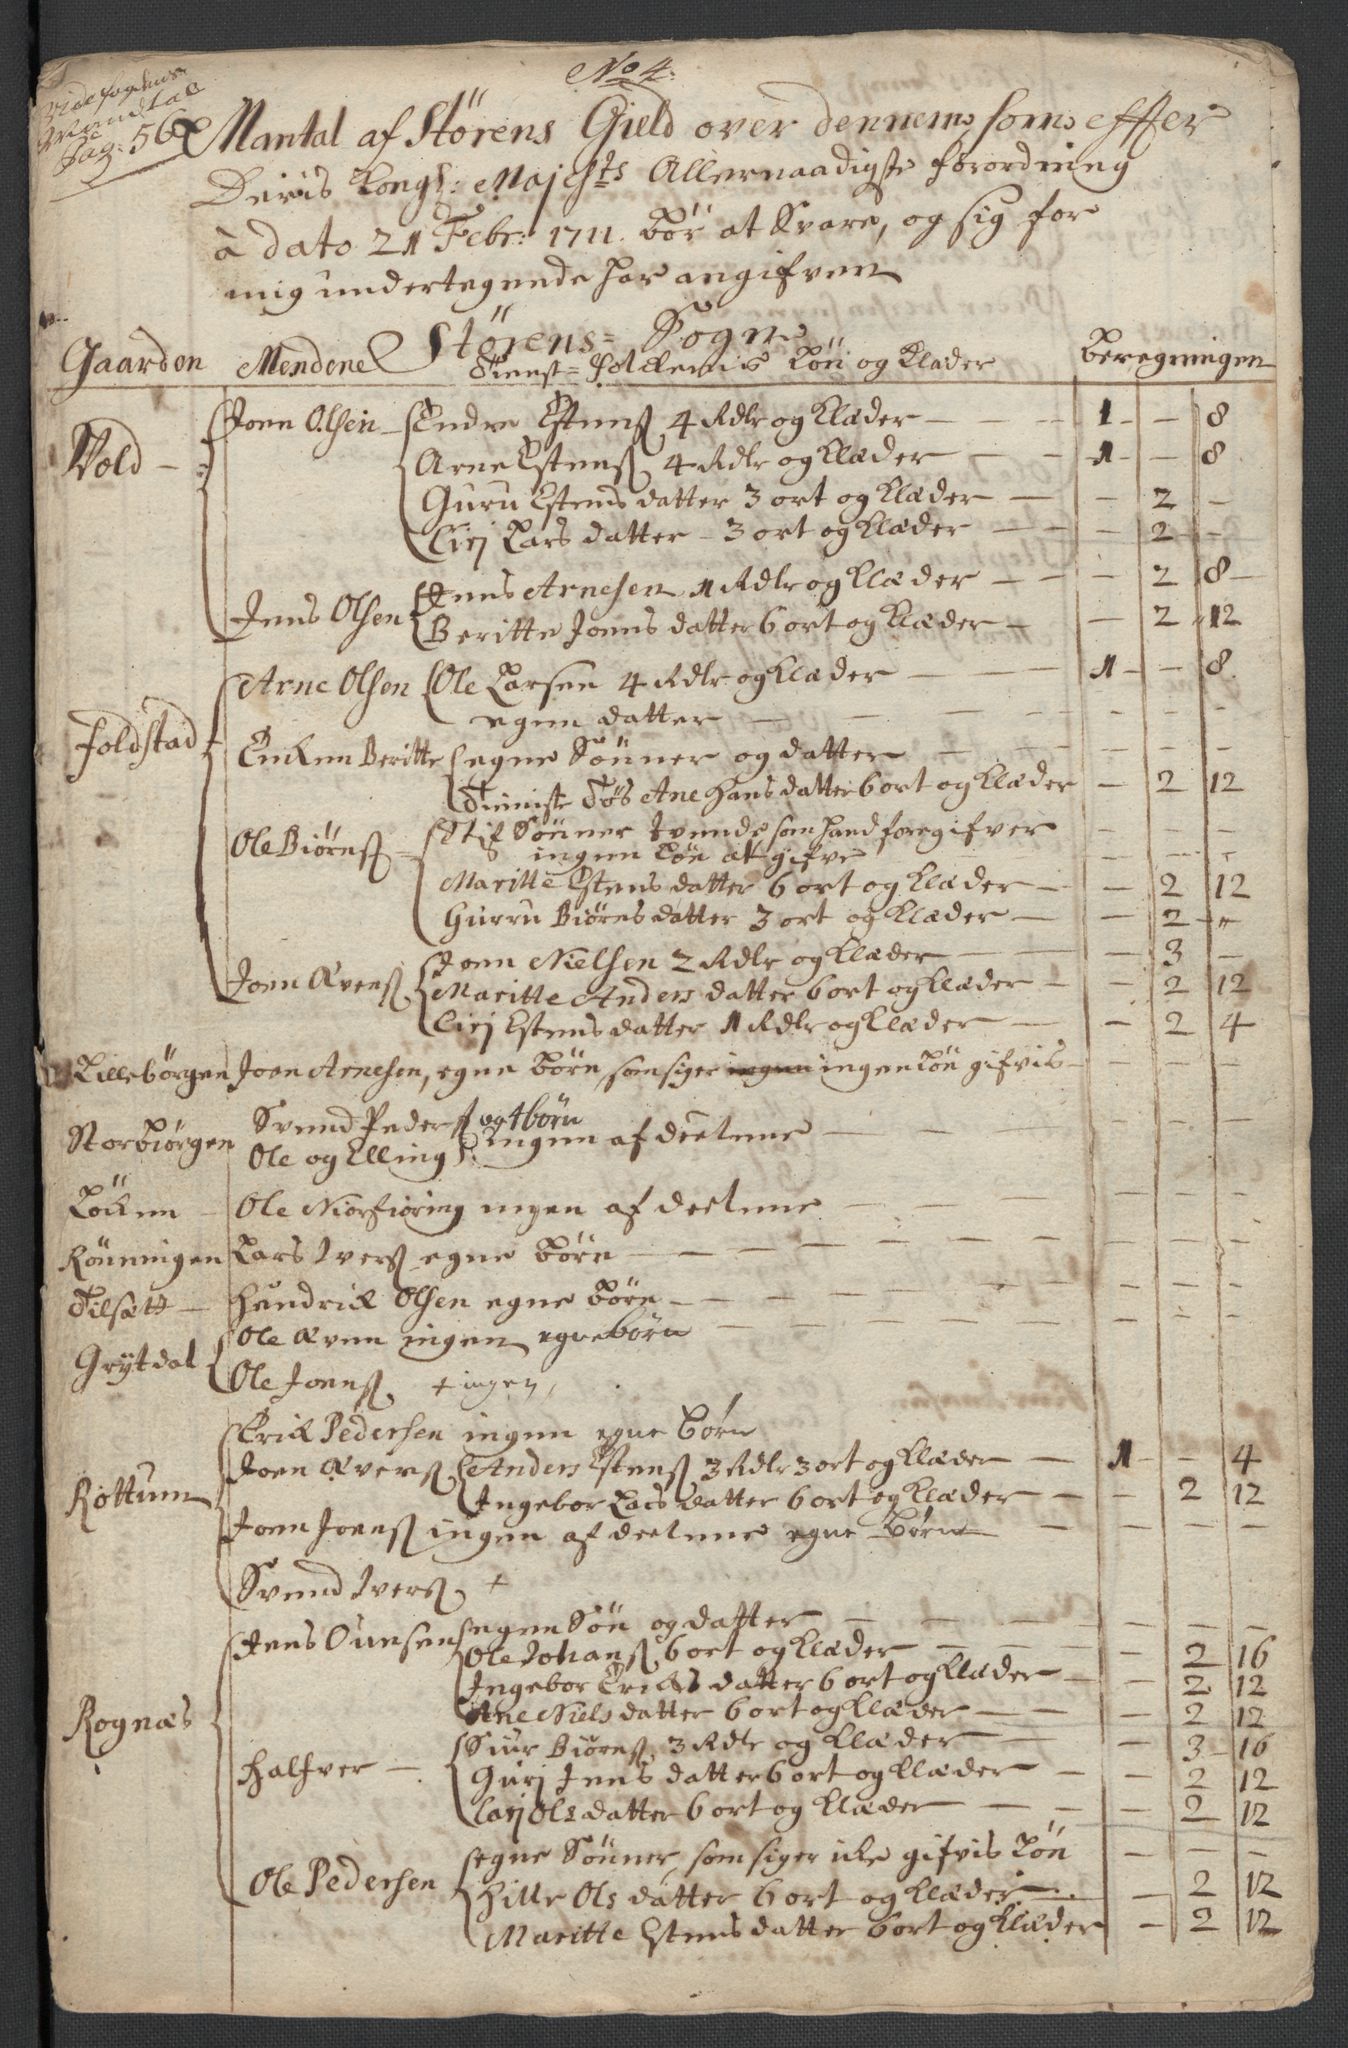 No 4.
Vide fogdens
Mandtal
Pag: 56
Mantal af Störens Gield over dennem som effter
Deris Kongl: Majests Allernaadigste forordning
à dato 21 Febr: 1711. bör at Svare, og sig for
mig undertegnede har angifven
Störens Sogn
Gaarden Mendene Tienst-folkenis Lön og Klæder beregningen
Vold Joen Olsen Endre Estens 4 Rdlr og Klæder 1 - 8
Arne Estens 4 Rdlr og Klæder 1 - 8
Guru Estens datter 3 ort og Klæder - 2 -
Cirj Lars datter 3 ort og Klæder - 2 -
Jens Olsen Jens Arnesen 1 Rdlr og Klæder - 2 8
Beritte Joens datter 6 ort og Klæder - 2 12
Foldstad Arne Olsen Ole Larsen 4 Rdlr og Klæder 1 - 8
egen datter
Enken Beritte egne Sönner og datter
Tieniste Tös Ane Hans datter 6 ort og Klæder - 2 12
Ole Biörns Stif Sönner tvende som hand foregifver
ingen Lön at gifve
Maritte Estens datter 6 ort og Klæder - 2 12
Gurru Biörns datter 3 ort og Klæder - 2 -
Joen Ævens Joen Nielsen 2 Rdlr og Klæder - 3 -
Maritte Anders datter 6 ort og Klæder - 2 12
Cirj Estens datter 1 Rdlr og Klæder - 2 4
Lillebörgen Joen Arnesen, egne börn, som siger ingen ingen Lön gifvis
Storbiörgen Svend Peders og 4 börn
Ole og Elling ingen af deelene
Löcken Ole Niorfiöring ingen af deelene
Rönningen Lars Ivers egne börn
Tilsætt Hendrick Olsen egne börn
Grytdal Ole Æven ingen egne börn
Ole Joens + ingen
Rottum Erick Pedersen ingen egne börn
Joen Ævers Anders Estens 3 Rdlr 3 ort og Klæder 1 - 4
Ingebor Lars datter 6 ort og Klæder - 2 12
Joen Joens ingen af deelene egne börn
Svend Ivers +
Rognæs Jens Ounsen egen Sön og datter
Ole Johans 6 ort og Klæder - 2 16
Ingebor Ericks datter 6 ort og Klæder - 2 12
Ane Niels datter 6 ort og Klæder - 2 12
Halfver Siur Biörns 3 Rdlr og Klæder - 3 16
Gurj Jens datter 6 ort og Klæder - 2 12
Carj Ols datter 6 ort og Klæder - 2 12
Ole Pedersen egne Sönner, som siger icke gifvis Lön
Hille Ols datter 6 ort og Klæder - 2 12
Maritte Estens datter 6 ort og Klæder - 2 12